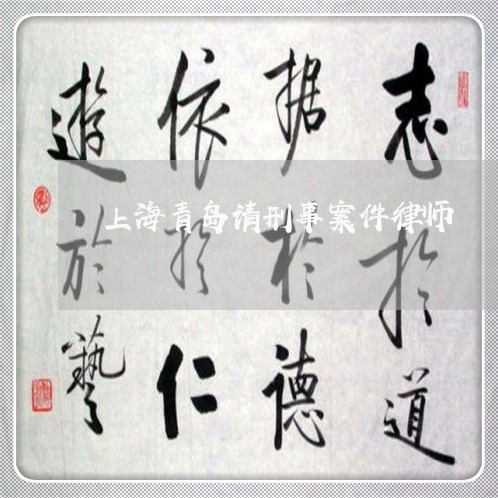 志於道
据於德
依於仁
遊於藝
上海青岛请刑事案件律师